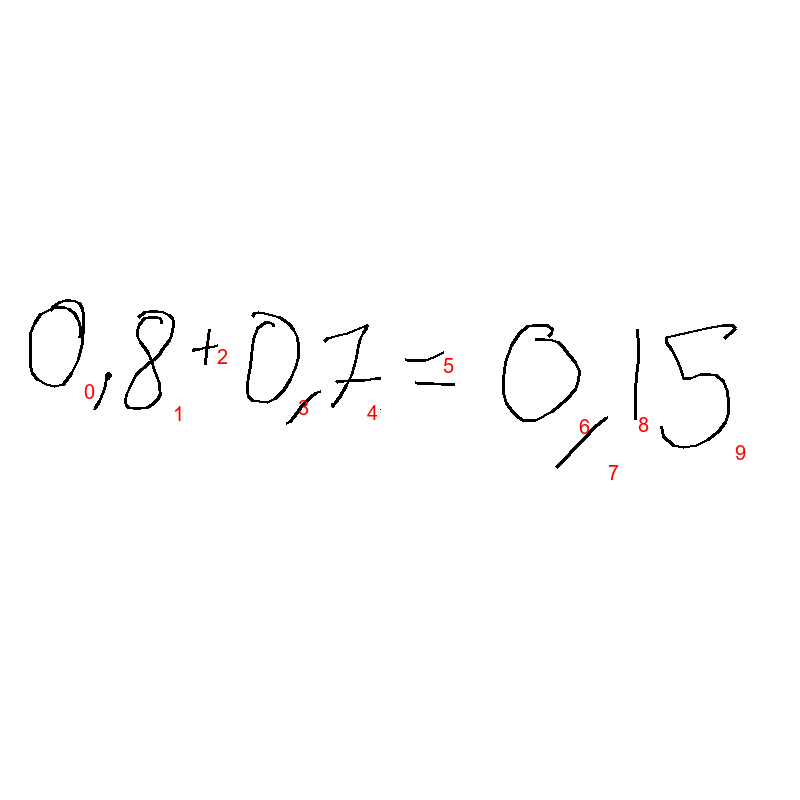 0,8+0,7=0,15
0 1 2 3 4 5 6 7 8 9